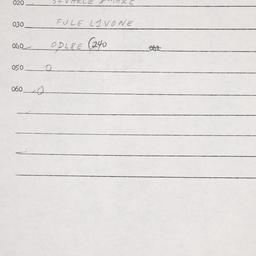 020
030 FULE LIVONE
040 ODLEE (240
050 0
060 0